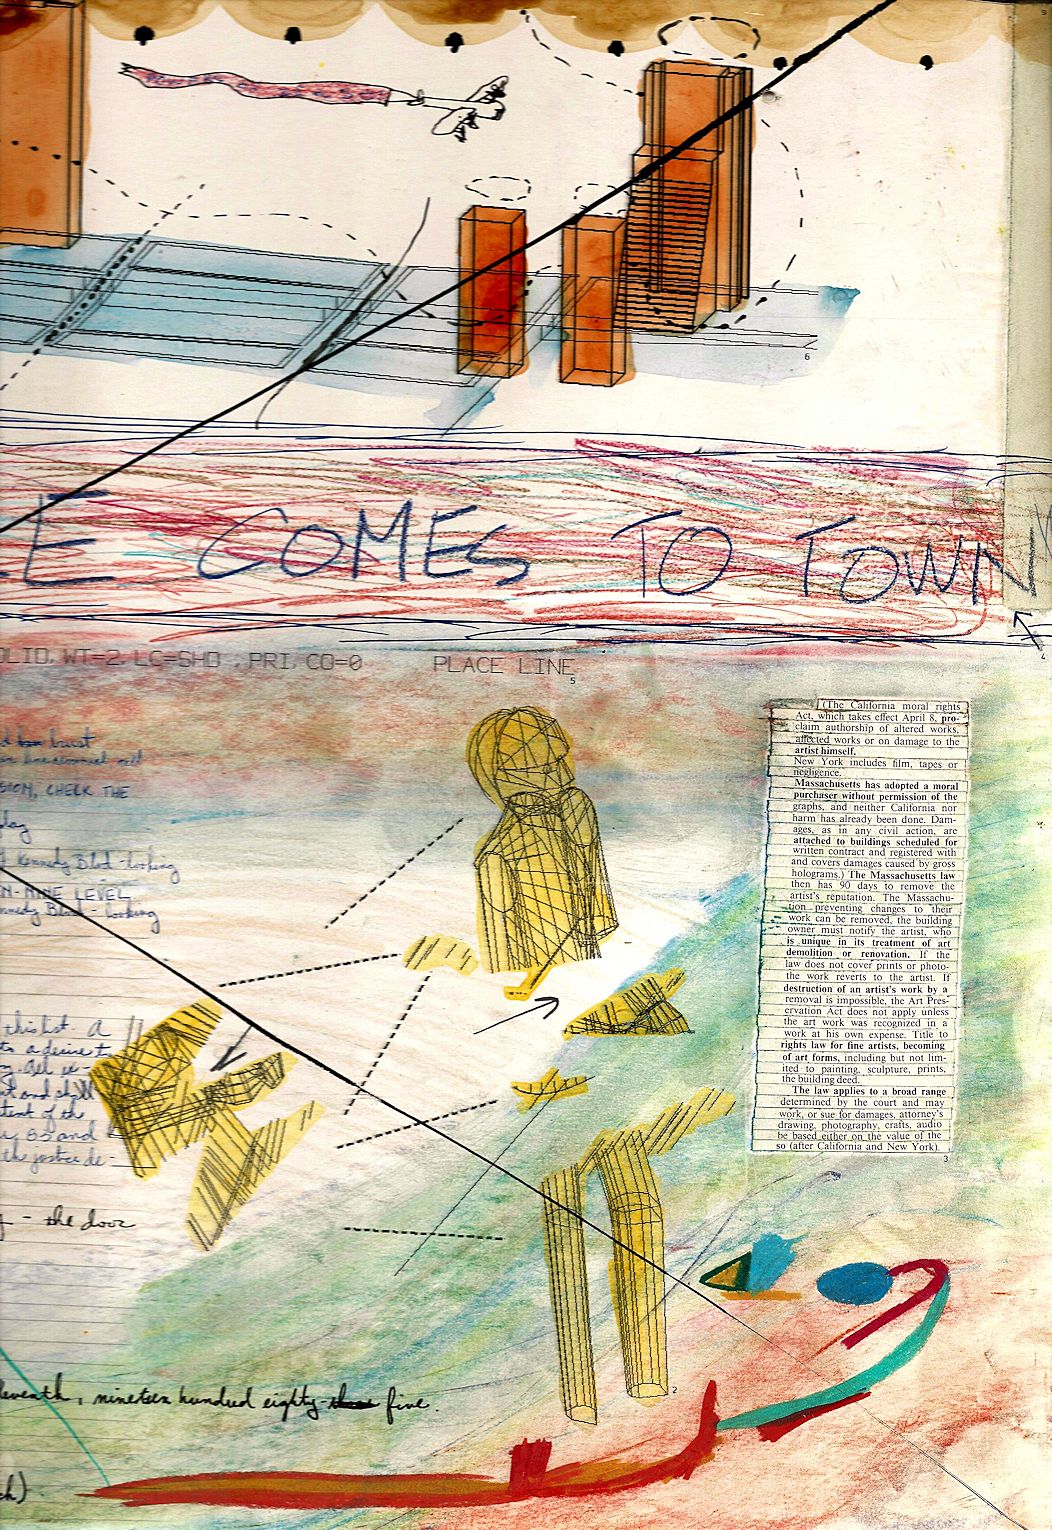 6
E COMES TO TOWN
OLID, WT=2, LC=SHD , PRI, CO=0 PLACE LINE
5
burst
SION, CHECK THE
day
Kennedy Blvd - looking
N-NINE LEVEL
nnedy Blvd - looking
this hot. A
to a desire to
and shall
tent of the
and
the justice de-
- the door
leventh, nineteen hundred eighty-three five.
ch)
(The California moral rights
Act, which takes effect April 8, pro-
claim authorship of altered works,
affected works or on damage to the
artist himself.
New York includes film, tapes or
negligence.
Massachusetts has adopted a moral
purchaser without permission of the
graphs, and neither California nor
harm has already been done. Dam-
ages, as in any civil action, are
attached to buildings scheduled for
written contract and registered with
and covers damages caused by gross
holograms.) The Massachusetts law
then has 90 days to remove the
artist's reputation. The Massachu-
tion preventing changes to their
work can be removed, the building
owner must notify the artist, who
is unique in its treatment of art
demolition or renovation. If the
law does not cover prints or photo-
the work reverts to the artist. If
destruction of an artist's work by a
removal is impossible, the Art Pres-
ervation Act does not apply unless
the art work was recognized in a
work at his own expense. Title to
rights law for fine artists, becoming
of art forms, including but not lim-
ited to painting, sculpture, prints,
the building deed.
The law applies to a broad range
determined by the court and may
work, or sue for damages, attorney's
drawing, photography, crafts, audio
be based either on the value of the
so (after California and New York).
3
2